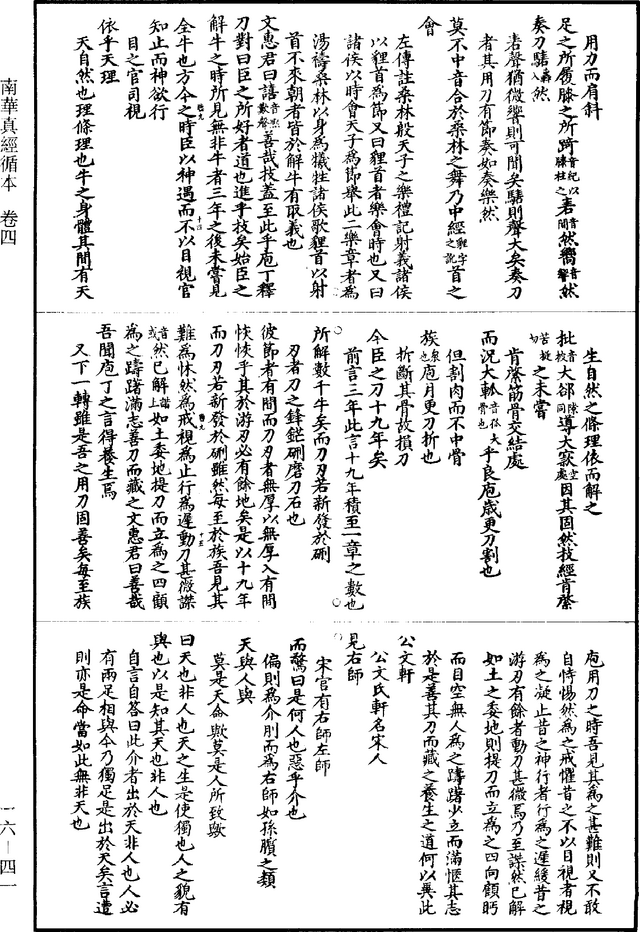 南華真經循本 卷四
用刀而肩斜
足之所履膝之所踦音紀以膝柱之砉音間然嚮音響然
奏刀騞音然
砉聲猶微響則可聞矣騞則聲大矣奏刀
者其用刀有節奏如奏樂然
莫不中音合於桑林之舞乃中經首之
會
左傳註桑林殷天子之樂禮記射義諸侯
以貍首為節又曰貍首者樂會時也又曰
諸侯以時會天子為節舉此二樂章者為
湯禱桑林以身為犧牲諸侯歌貍首以射
首不來朝者皆於解牛有取義也
文惠君曰譆音熙歎聲善哉技蓋至此乎庖丁釋
刀對曰臣之所好者道也進乎技矣始臣之
解牛之時所見無非牛者三年之後未嘗見
全牛也方今之時臣以神遇而不以目視官
知止而神欲行
目之官司視
依乎天理
天自然也理條理也牛之身體其間有天
生自然之條理依而解之
批大郤導大窾因其固然技經肯綮
之未嘗
肯綮筋骨交結處
而況大軱音孤大骨也乎良庖歲更刀割也
但割肉而不中骨
族衆也庖月更刀折也
折斷其骨故損刀
今臣之刀十九年矣
前言三年此言十九年積至一章之數也
所解數千牛矣而刀刃若新發於硎
刃者刀之鋒鋩硎磨刀石也
彼節者有間而刀刃者無厚以無厚入有間
恢恢乎其於游刃必有餘地矣是以十九年
而刀刃若新發於硎雖然每至於族吾見其
難為怵然為戒視為止行為遲動刀甚微謋
然已解如土委地提刀而立為之四顧
為之躊躇滿志善刀而藏之文惠君曰善哉
吾聞庖丁之言得養生焉
又下一轉雖是吾之用刀固善矣每至族
庖用刀之時吾見其為之甚難則又不敢
自恃惕然為之戒懼昔之不以目視者視
為之凝止昔之神行者行為之遲緩昔之
游刃有餘者動刀甚微焉乃至謋然已解
如土之委地則提刀而立為之四向顧眄
而目空無人為之躊躇少立而滿愜其志
於是善其刀而藏之養生之道何以異此
公文軒
公文氏軒名宋人
見右師
宋官有右師左師
而驚曰是何人也惡乎介也
偏則為介刖而為右師如孫臏之類
天與人與
莫是天命歟莫是人所致歟
曰天也非人也天之生是使獨也人之貌有
與也以是知其天也非人也
自言自答曰此介者出於天非人也人必
有兩足相與今乃獨足是出於天矣言遭
則亦是命當如此無非天也
一六－四一